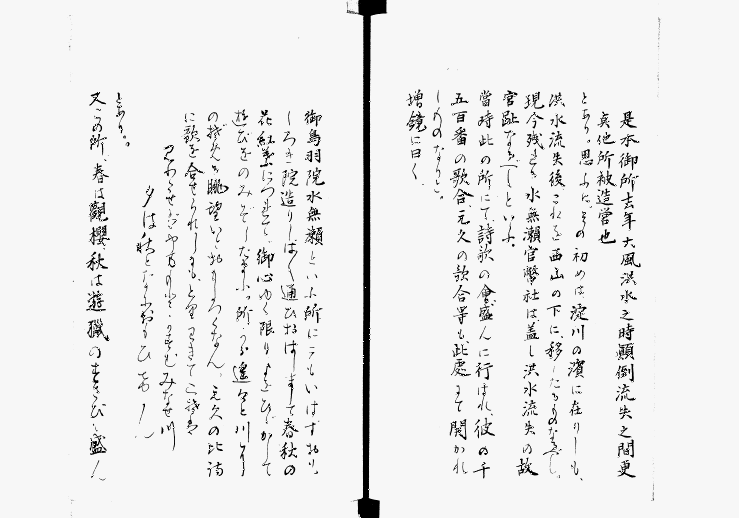 是本御所去年大風洪水之時顚倒流失之間更
眞他所被造営也
とあり。思ふに、その初めは淀川の濱に在りしも、
洪水流失後これを西山の下に移したるものなるべし。
現今残れる水無瀬官幣社は蓋し洪水流失の故
官趾なるべしといふ。
當時此の所にて詩歌の會盛んに行はれ、彼の千
五百番の歌合、元久の歌合等も此處にて開かれ
しものなりと。
増鏡に曰く、
御鳥羽院水無瀬といふ所にえもいはずおもしろ
しろき院造りしばしば通ひおはしまして春秋の
花紅葉につけても御心ゆく限り世をひびかして
遊びをのみぞしたまふ。所がら遙々と川にのぞめる
の眺望いとおもしろくなん。元久の比詩
に歌を合せられしにもとりわきてこそは
見わたせば山もとかすむみなせ川
夕は秋となにおもひけん
とあり。
又この所、春は觀櫻秋は遊獵のすさび盛ん